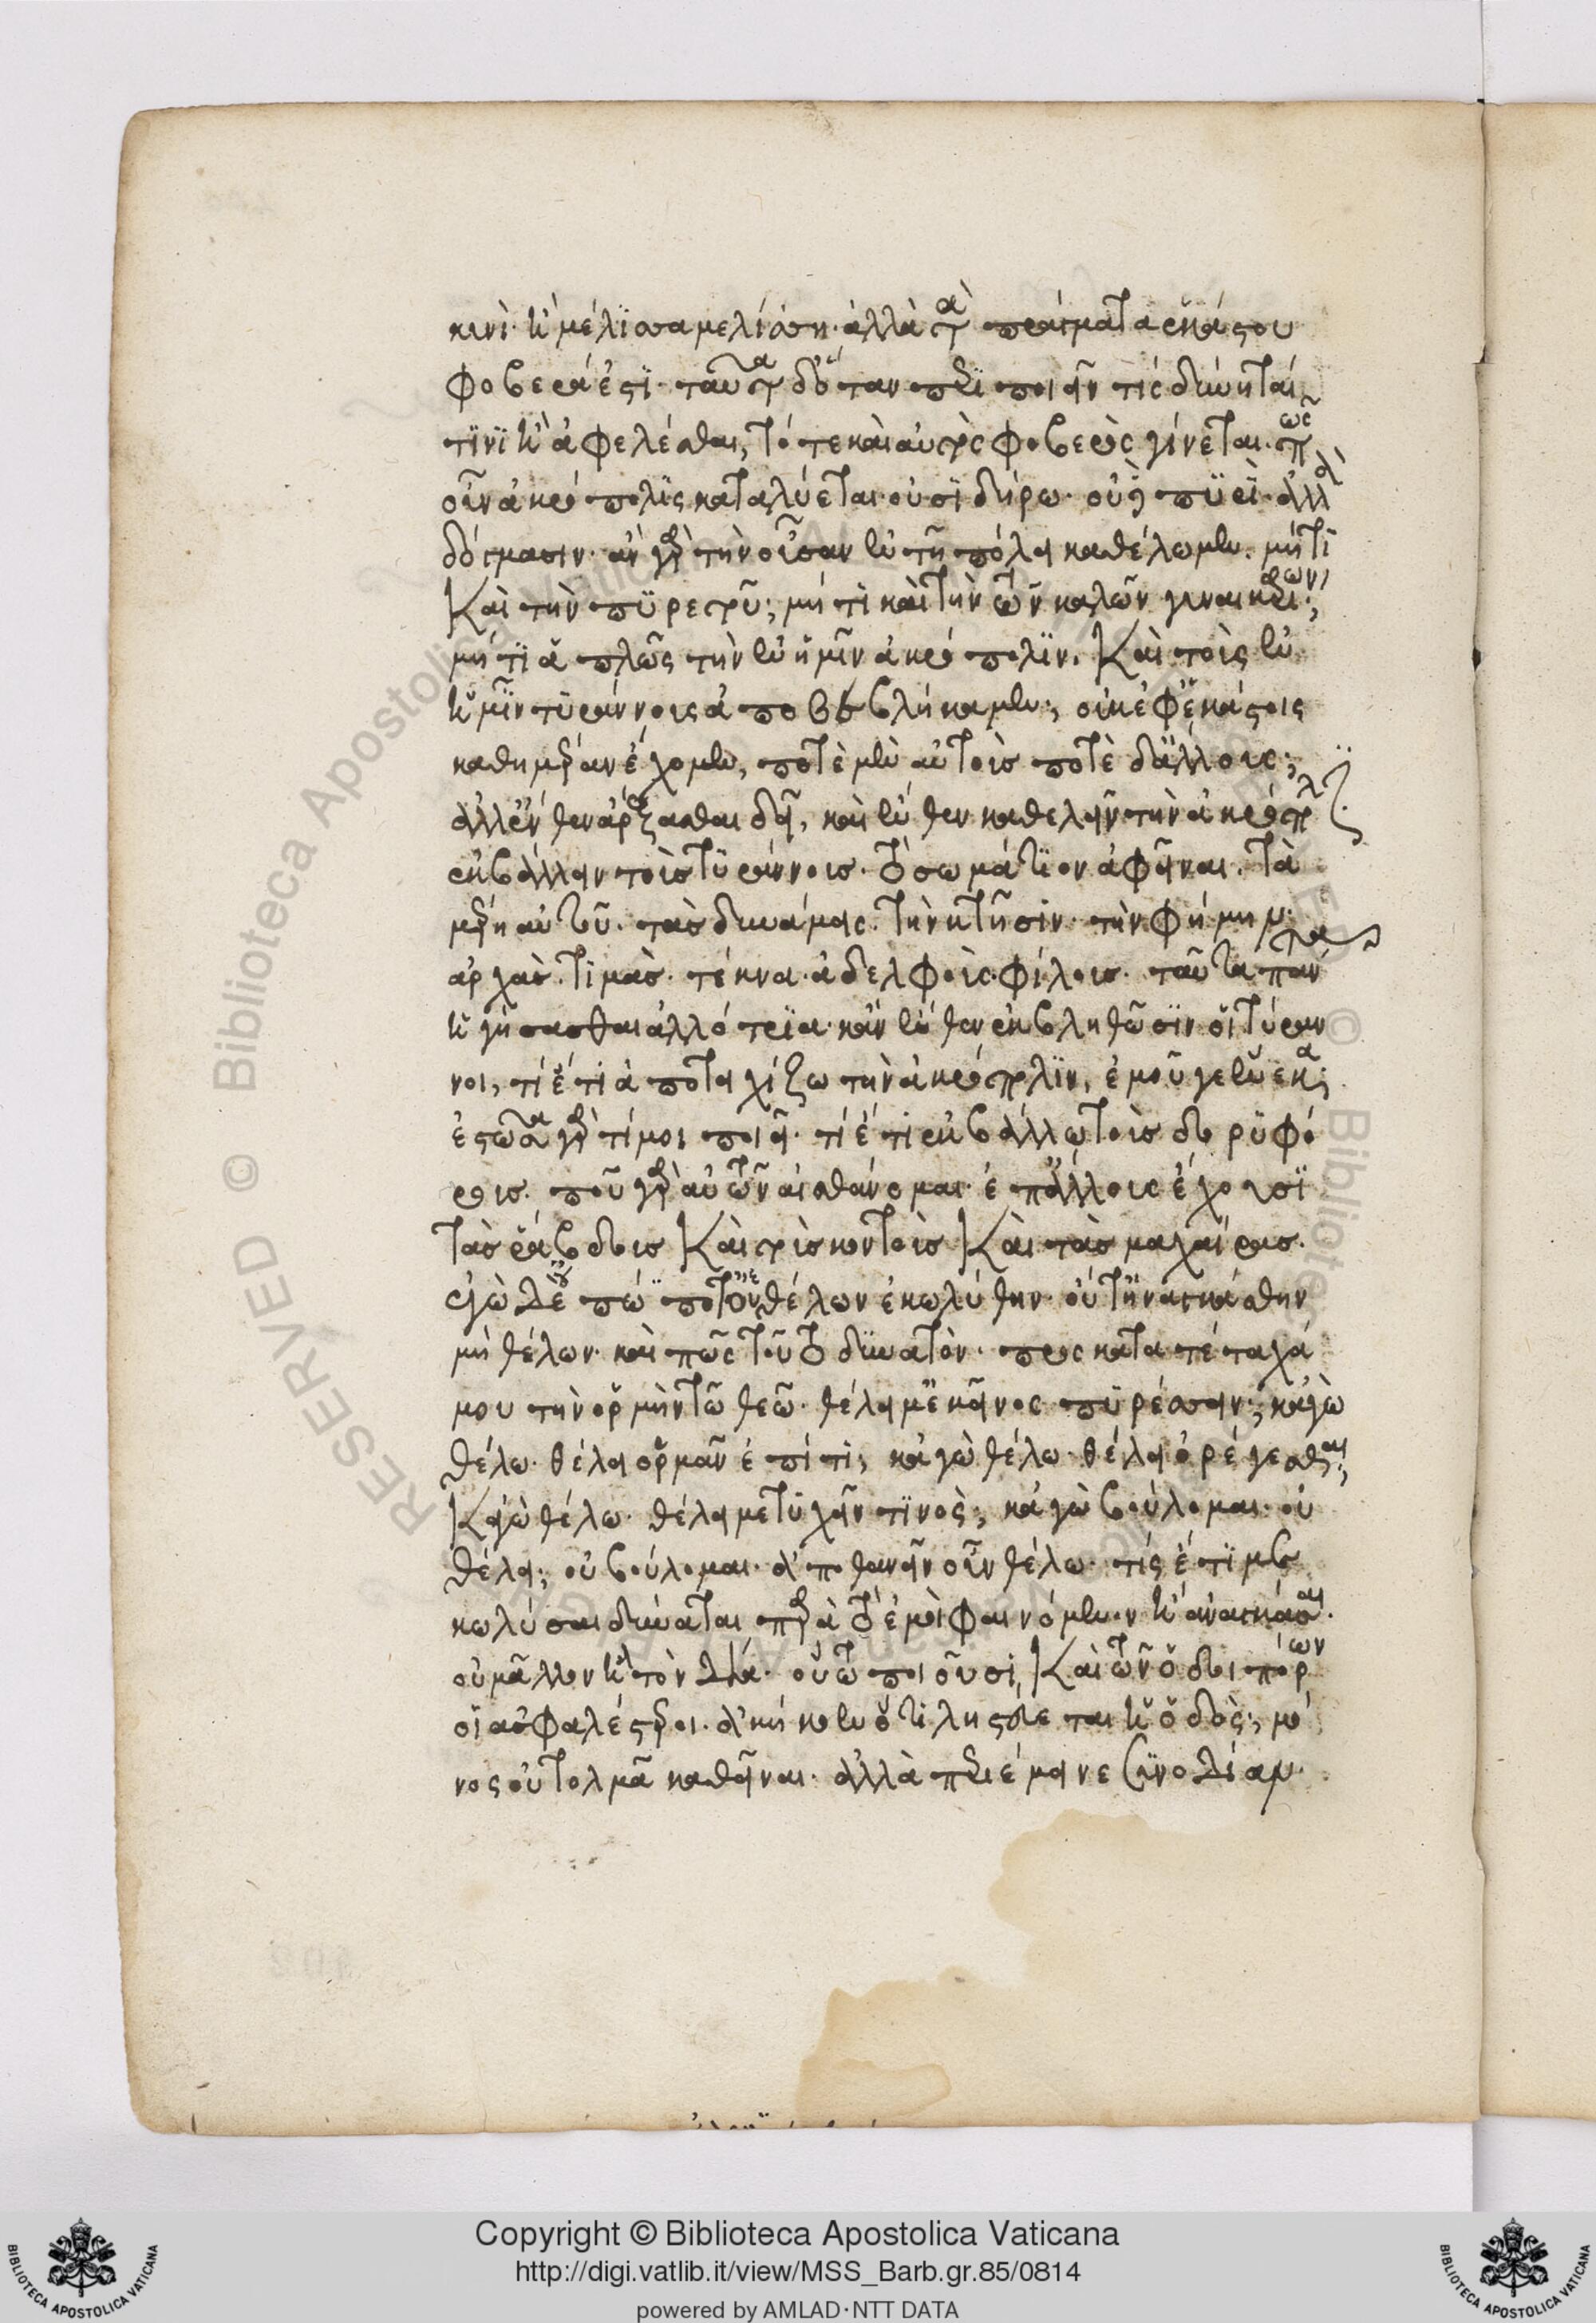 κυνὶ· ἢ μέλισσα μελίσσῃ· ἀλλὰ τὰ πράγματα ἑκάστου
φοβερά ἐστι· ταῦτα δ' ὅταν περιποιεῖν τίς δύνηταί
τινι ἢ ἀφελέσθαι, τότε καὶ αὐτὸς φοβερὸς γίνεται. πῶς
οὖν ἀκρόπολις καταλύεται· οὐ σιδήρω· οὐδὲ πυρὶ· ἀλλὰ
δόγμασιν· ἂν γὰρ τὴν οὖσαν ἐν τῆ πόλει καθέλωμεν. μήτι
Καὶ τὴν πυρετοῦ; μήτι καὶ τὴν τῶν καλῶν γυναικαρίων;
μήτι ἁπλῶς τὴν ἐν ἡμῖν ἀκρόπολιν. Καὶ τοὺς ἐν
ἡμῖν τυράννους ἀποβεβλήκαμεν; οὓς ἐφ' ἑκάστοις
καθημέραν ἔχομεν, ποτὲ μὲν αὐτοὺς ποτὲ δ' ἄλλους;
ἀλλ' ἔνθεν ἄρξασθαι δεῖ, καὶ ἔνθεν καθελεῖν τὴν ἀκρόπολιν
ἐκβάλλειν τοὺς τυράννους· τὸ σωμάτιον ἀφεῖναι. τὰ
μέρη αὐτοῦ. τὰς δυνάμεις. τὴν κτῆσιν· τὴν φήμην·
ἀρχὰς. τιμὰς. τέκνα. ἀδελφοὺς. φίλους. ταῦτα πάντα
ἡγήσασθαι ἀλλότρια· κἂν ἔνθεν ἐκβληθῶσιν οἱ τύραν
νοι, τί ἔτι ἀποτειχίζω τὴν ἀκρόπολιν, ἐμοῦ γε ἕνεκα;
ἑστῶσα γὰρ τί μοι ποιεῖ· τί ἔτι ἐκβάλλω τοὺς δορυφό
ρους. ποῦ γὰρ αὐτῶν αἰσθάνομαι· ἐπ' ἄλλους ἔχουσι
τὰς ῥάβδους Καὶ τοὺς κοντοὺς Καὶ τὰς μαχαίρας.
ἐγὼ δ' οὐπώποτ' οὔτε θέλων ἐκωλύθην· οὔτ' ἠναγκάσθην
μὴ θέλων· καὶ πῶς τοῦτο δυνατὸν· προσκατατέταχά
μου τὴν ὁρμὴν τῶ θεῶ· θέλει μ' ἐκεῖνος πυρέσσειν; κἀγὼ
θέλω· θέλει ὁρμᾶν ἐπί τι; κἀγὼ θέλω· θέλει ὀρέγεσθαι;
Κἀγὼ θέλω· θέλει με τυχεῖν τινὸς; κἀγὼ βούλομαι· οὐ
θέλει; οὐ βούλομαι· ἀποθανεῖν οὖν θέλω· τίς ἔτι με
κωλῦσαι δύναται παρὰ τὸ ἐμοὶ φαινόμενον ἢ ἀναγκάσαι·
οὐ μᾶλλον ἢ τὸν Δία· οὕτω ποιοῦσι, Καὶ τῶν ὁδοιπόρων
οἱ ἀσφαλέστεροι. ἀκήκοεν ὅτι λῃστεύεται ἡ ὁδὸς; μό
νος οὐ τολμᾶ καθεῖναι· ἀλλὰ περιέμεινε συνοδίαν·